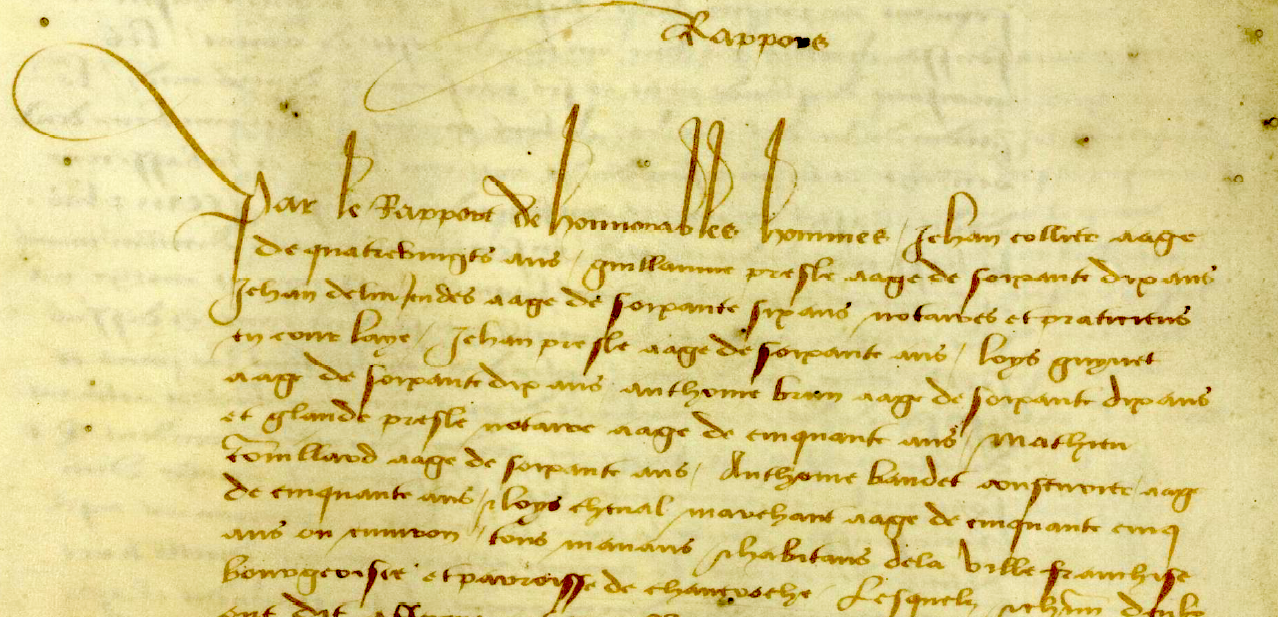 Rappors
Par le Rapport de honnorables hommes / Jehan collier aage
de quatrevingts ans / guillaume presle aage de soixante dix ans
Jehan aage de soixante six ans notaires et praticiens
en court laye / Jehan presle aage de soixante ans / loys guynet
aage de soixante dix ans anthoine brun aage de soixante dix ans
et glaude presle notaire aage de cinquante ans / Mathieu
aage de soixante ans / Anthoine baudet aage
de cinquante ans / loys cheval marchant aage de cinquante cinq
ans ou environ / tous manans habitans dela ville franchise
bourgeoisie et parroisse de / Lesquelz
ont dit